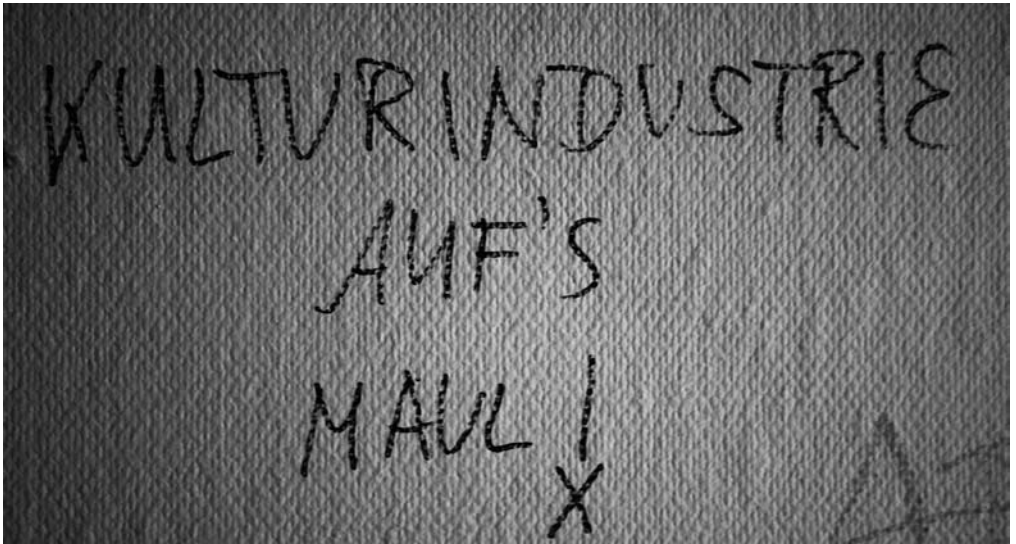 KULTURINDUSTRIE
AUF'S
MAUL!